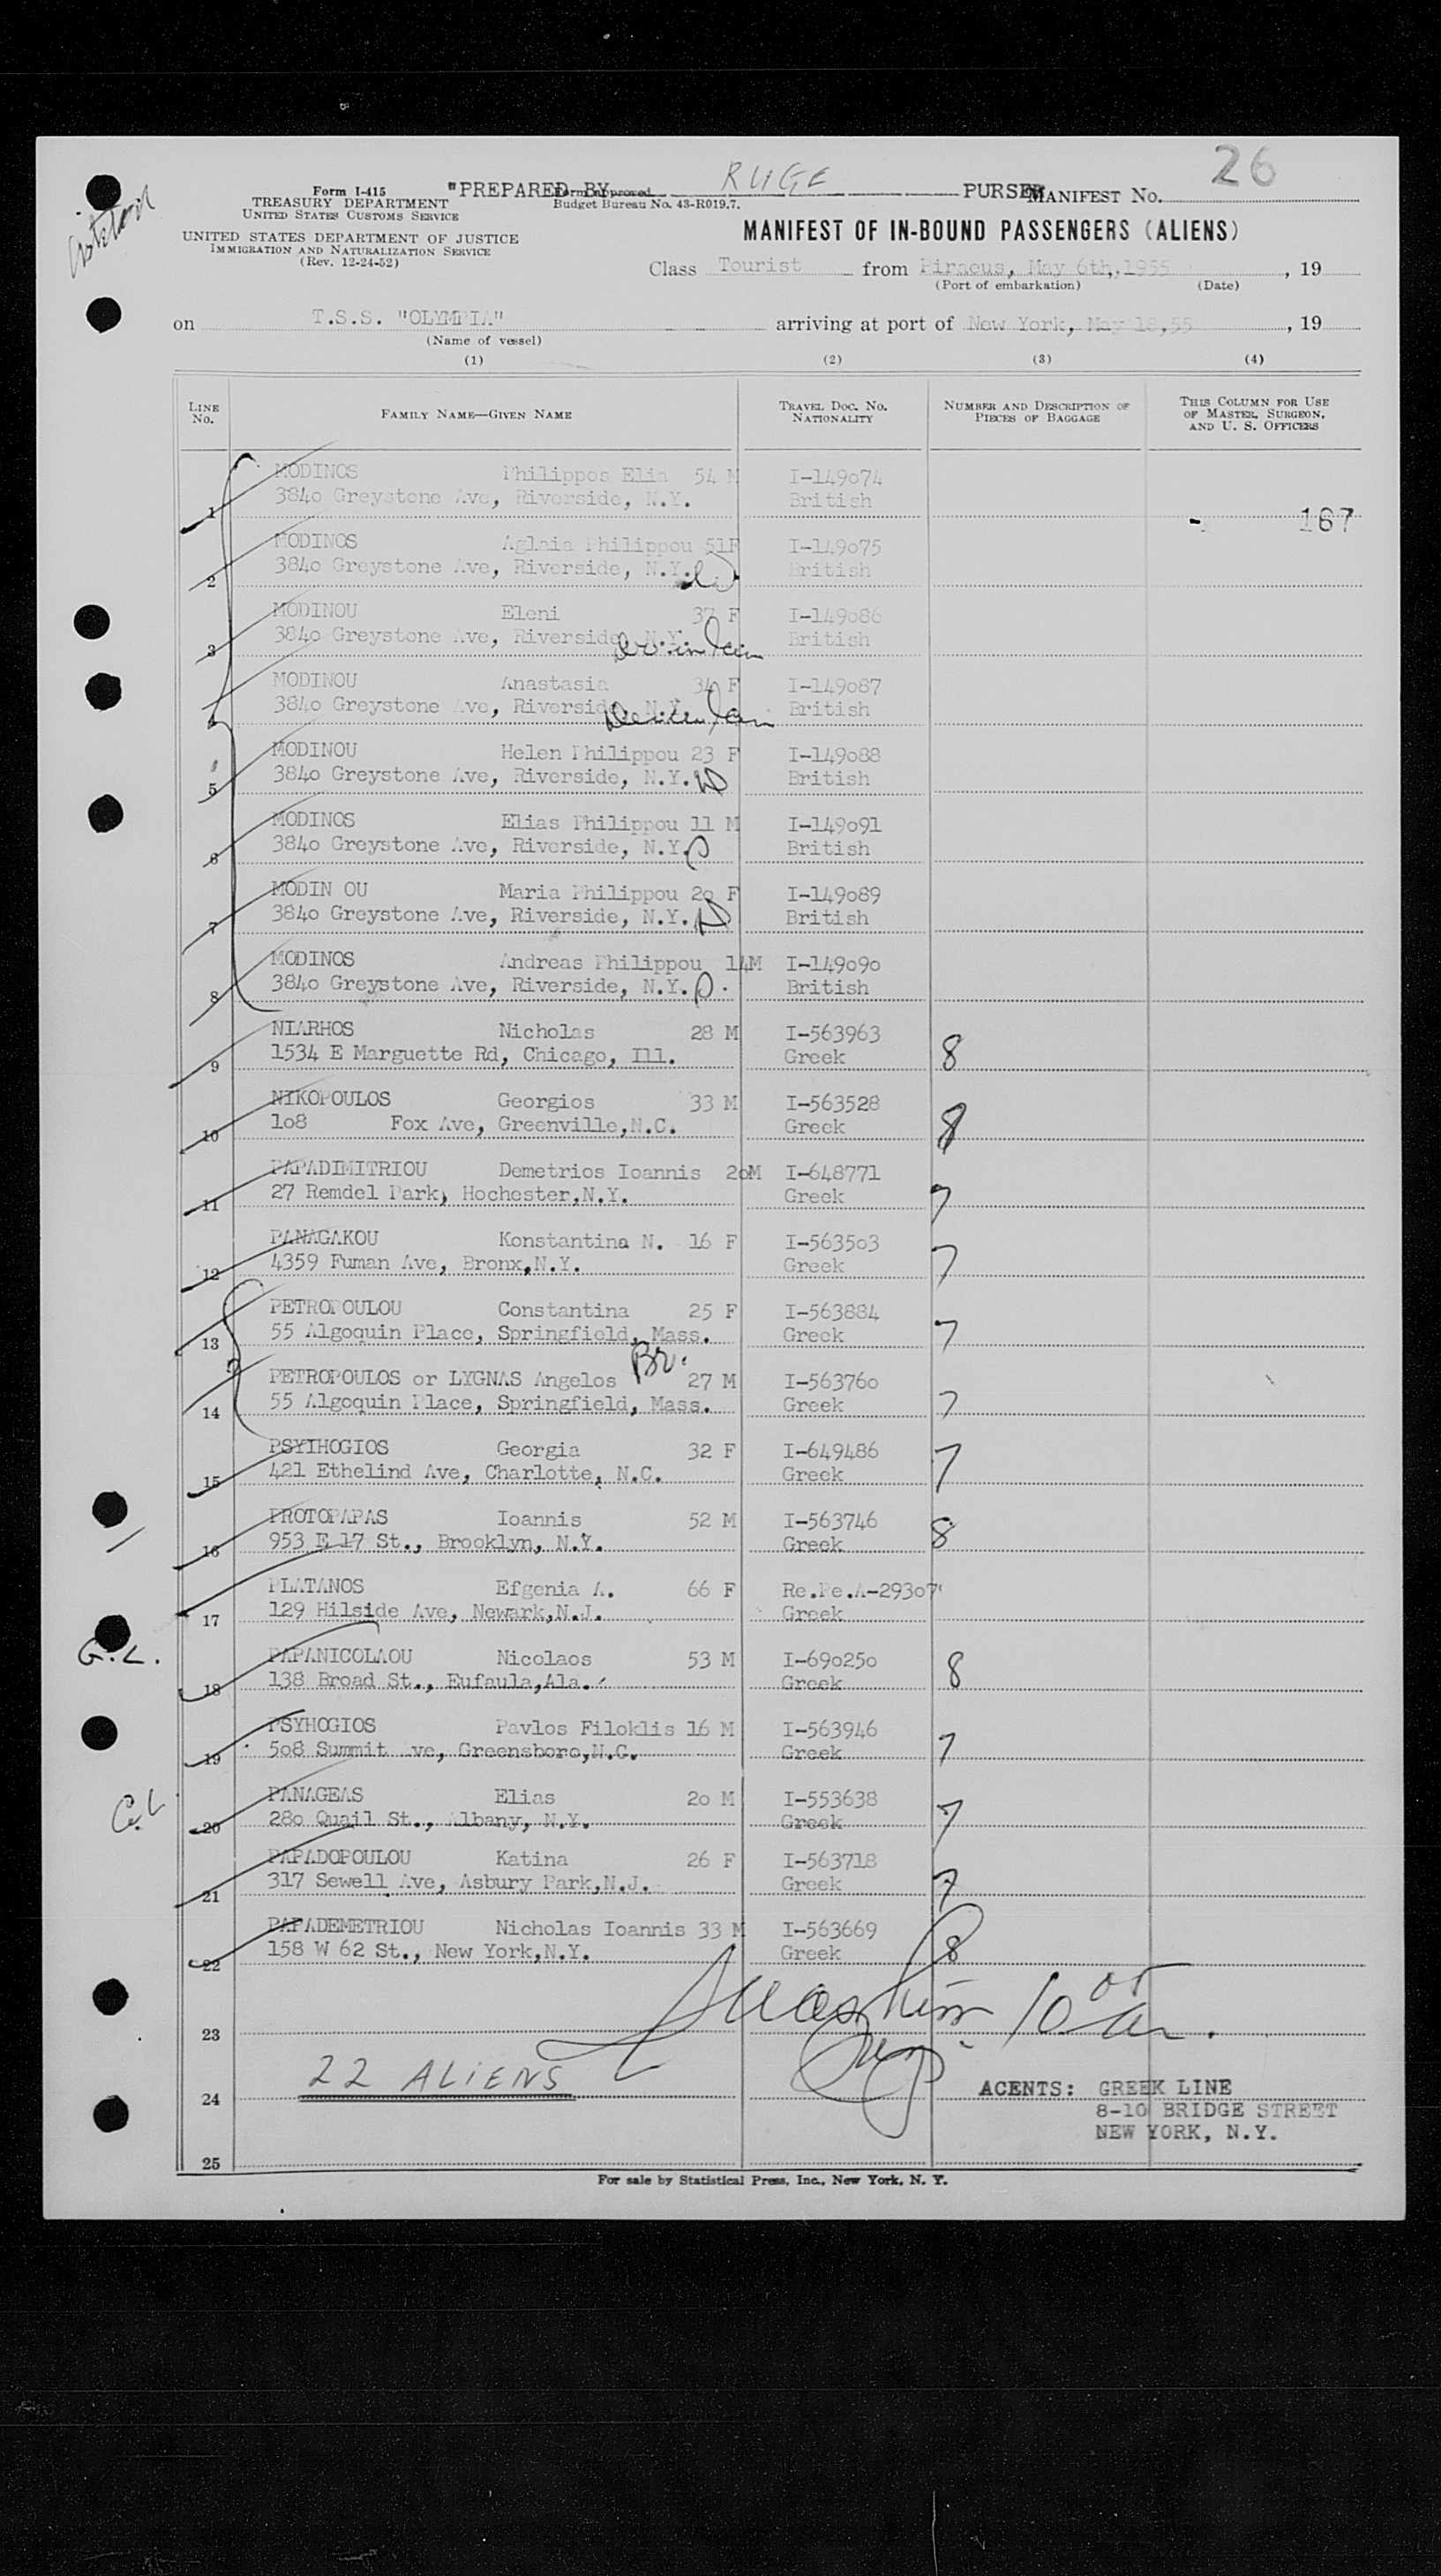 26
Form I-415
TREASURY DEPARTMENT
UNITED STATES CUSTOMS SERVICE
UNITED STATES DEPARTMENT OF JUSTICE
IMMIGRATION AND NATURALIZATION SERVICE
(Rev. 12-24-52)
"PREPARED BY RUGE PURSER
Form approved
Budget Bureau No. 43-R019.7.
MANIFEST No.
MANIFEST OF IN-BOUND PASSENGERS (ALIENS)
Class Tourist from Piraeus, May 6th, 1955, 19
(Port of embarkation) (Date)
on T.S.S. "OLYMPIA" arriving at port of New York, May 18,55, 19
(Name of vessel)
(1) (2) (3) (4)
LINE No. FAMILY NAME—GIVEN NAME TRAVEL DOC. NO. NATIONALITY NUMBER AND DESCRIPTION OF PIECES OF BAGGAGE THIS COLUMN FOR USE OF MASTER, SURGEON, AND U. S. OFFICERS
MODINOS Philippos Elia 54 M I-149074
1 3840 Greystone Ave, Riverside, N.Y. British
167
MODINOS Aglaia Philippou 51F I-149075
2 3840 Greystone Ave, Riverside, N.Y. British
MODINOU Eleni 37 F I-149086
3 3840 Greystone Ave, Riverside, N.Y. British
MODINOU Anastasia 34 F I-149087
4 3840 Greystone Ave, Riverside, N.Y. British
MODINOU Helen Philippou 23 F I-149088
5 3840 Greystone Ave, Riverside, N.Y. British
MODINOS Elias Philippou 11 M I-149091
6 3840 Greystone Ave, Riverside, N.Y. British
MODIN OU Maria Philippou 20 F I-149089
7 3840 Greystone Ave, Riverside, N.Y. British
MODINOS Andreas Philippou 14M I-149090
8 3840 Greystone Ave, Riverside, N.Y. British
NIARHOS Nicholas 28 M I-563963
9 1534 E Marguette Rd, Chicago, Ill. Greek 8
NIKOPOULOS Georgios 33 M I-563528
10 108 Fox Ave, Greenville,N.C. Greek 8
PAPADIMITRIOU Demetrios Ioannis 20M I-648771
11 27 Remdel Park, Hochester,N.Y. Greek 7
PANAGAKOU Konstantina N. 16 F I-563503
12 4359 Fuman Ave, Bronx,N.Y. Greek 7
PETROPOULOU Constantina 25 F I-563884
13 55 Algoquin Place, Springfield, Mass. Greek 7
Br.
PETROPOULOS or LYGNAS Angelos 27 M I-563760
14 55 Algoquin Place, Springfield, Mass. Greek 7
PSYIHOGIOS Georgia 32 F I-649486
15 421 Ethelind Ave, Charlotte, N.C. Greek 7
PROTOPAPAS Ioannis 52 M I-563746
16 953 E 17 St., Brooklyn, N.Y. Greek 8
PLATANOS Efgenia A. 66 F Re.Pe.A-29307
17 129 Hilside Ave, Newark,N.J. Greek
G.L.
PAPANICOLAOU Nicolaos 53 M I-690250
18 138 Broad St., Eufaula,Ala. Greek 8
PSYHOGIOS Pavlos Filoklis 16 M I-563946
19 508 Summit ve, Greensboro,N.C. Greek 7
G.L
PANAGEAS Elias 20 M I-553638
20 280 Quail St., Albany, N.Y. Greek 7
PAPADOPOULOU Katina 26 F I-563718
21 317 Sewell Ave, Asbury Park,N.J. Greek 7
PAPADEMETRIOU Nicholas Ioannis 33 M I-563669
22 158 W 62 St., New York,N.Y. Greek 8
23
22 ALIENS
24
AGENTS: GREEK LINE
8-10 BRIDGE STREET
NEW YORK, N.Y.
25
For sale by Statistical Press, Inc., New York, N. Y.